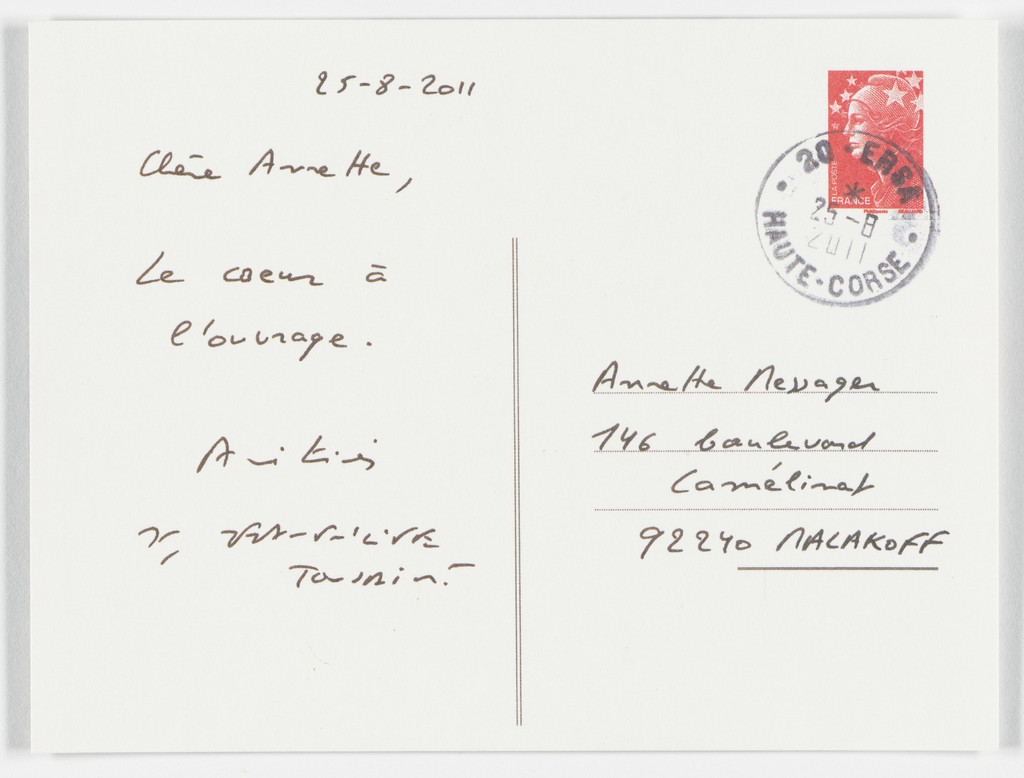 25-8-2011
Chère Annette,
Le coeur à
l'ouvrage.
Amitiés
Jean-Philippe
Toussaint
LA POSTE
FRANCE
20 - ERSA
25-8
2011
HAUTE-CORSE
Annette Messager
146 boulevard
Camélinat
92240 MALAKOFF